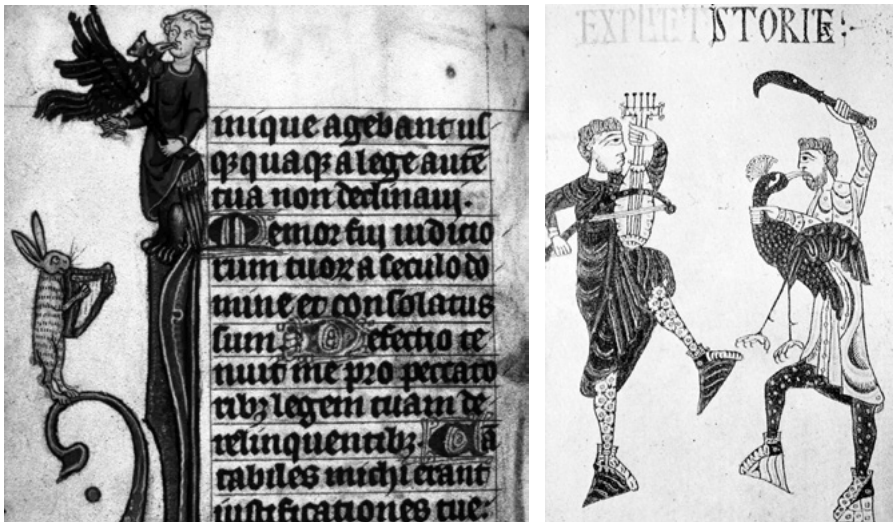 inique agebant us
qꝫquaqꝫ a lege autē
tua non declinaui.
Memor fui iudicio
rum tuoꝝ a seculo do
mine et consolatus
sum Defectio te
nuit me pro peccato
ribꝫ legem tuam de
relinquentibꝫ. Cā
tabiles michi erant
iustificationes tue:
STORIE: